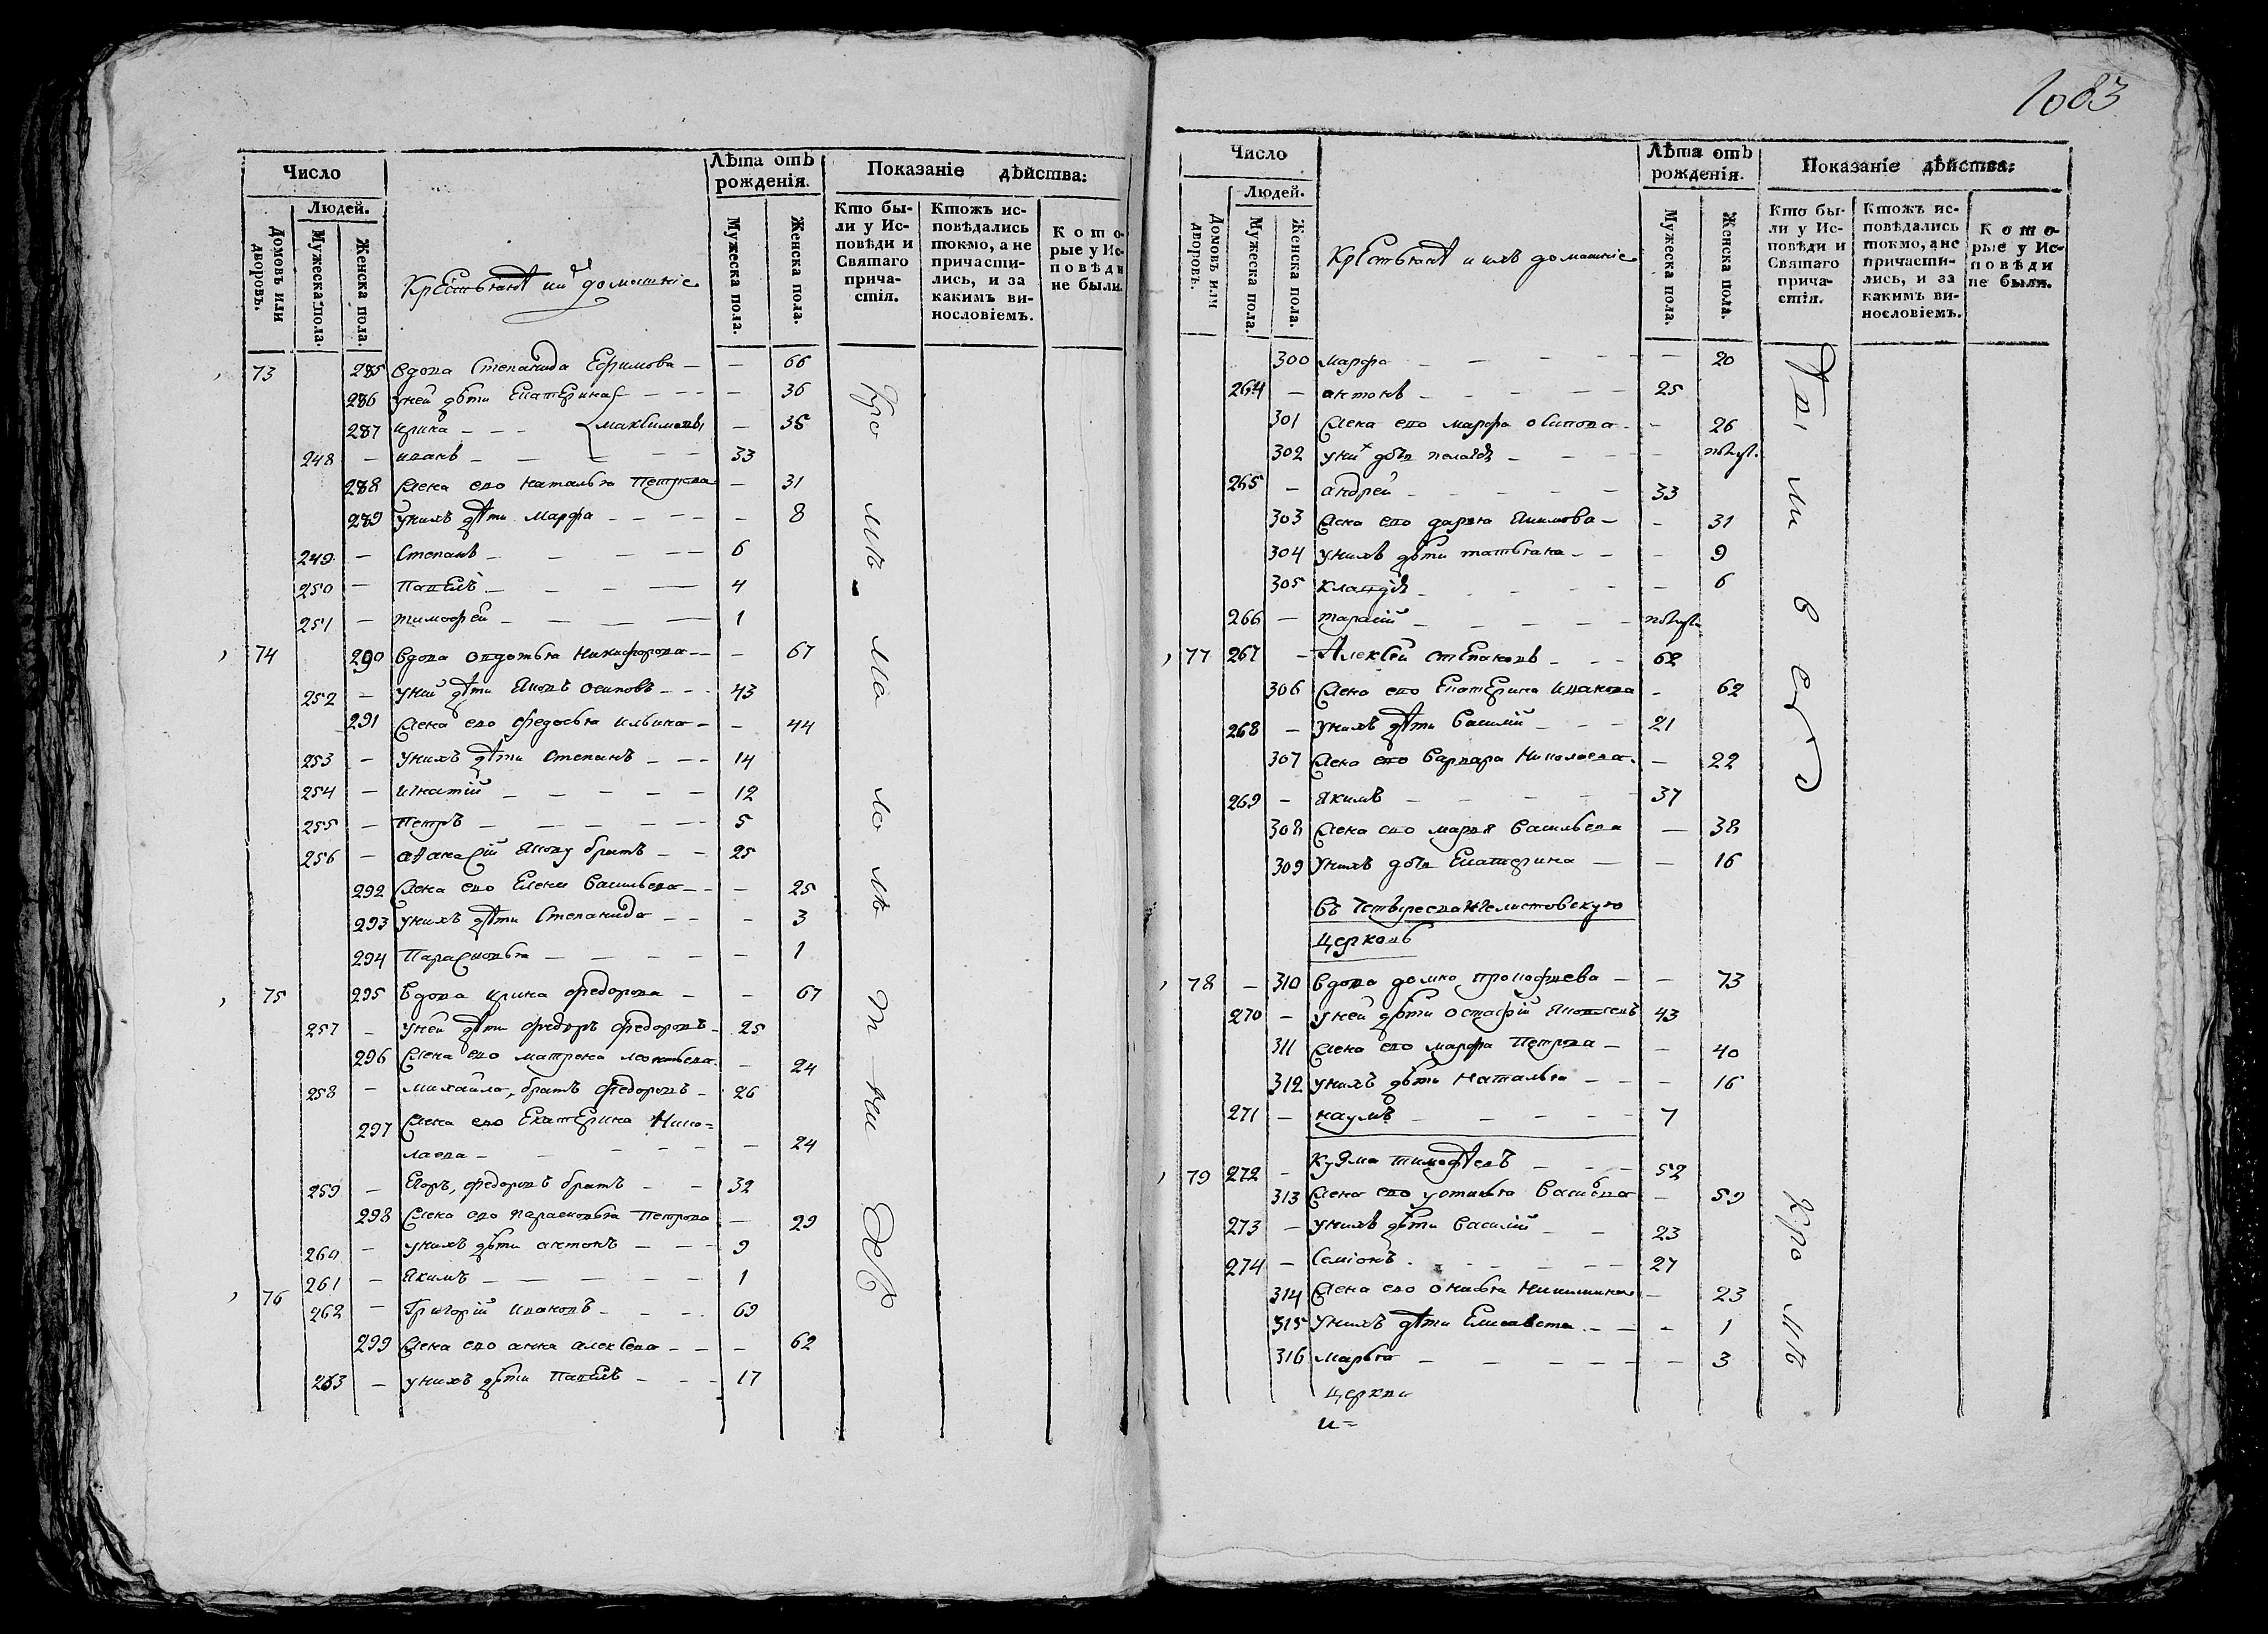 1083
Число
Людей.
Домовъ или дворовъ.
Мужеска пола.
Женска пола.
Крестьянѣ и их домашнїе
Лѣта отъ рожденїя.
Мужеска пола.
Женска пола.
Показанїе дѣйства:
Кто бы-
ли у Ис-
повѣди и
Святаго
прича-
стїя.
Ктожъ ис-
повѣдались
токмо, а не
причасти-
лись, и за
какимъ ви-
нословїемъ.
Кото-
рые у Ис-
повѣди
не были.
73 285 вдова Степанида Ефимова — — 66
286 у ней дѣти Екатерина — — 36
287 Ирина — Максимовы — 35
248 — Иванъ — 33
288 жена ево Наталья Петрова — 31
289 у нихъ дѣти Марфа — — 8
249 — Степанъ — 6
250 — Павелъ — 4
251 — Тимофей — 1
74 290 вдова Овдотья Никифорова — — 67
252 — у ней дѣти Яковъ Осиповъ — 43
291 жена ево Федосья Ильина — — 44
253 — у нихъ дѣти Степанъ — 14
254 — Игнатїй — 12
255 — Петръ — 5
256 — Аѳанасїй Якову братъ — 25
292 жена ево Елена Васильева — — 25
293 у нихъ дѣти Степанида — — 3
294 Парасковья — — 1
75 295 вдова Ирина Федорова — — 67
257 — у ней дѣти Федоръ Федоровъ — 25
296 жена ево Матрена Леонтьева — 24
258 — Михайла, братъ Федоровъ — 26
297 жена ево Екатерина Нико=
лаева — — 24
259 — Егоръ, Федоровъ братъ — 32
298 жена ево Парасковья Петрова — 29
260 — у нихъ дѣти Антонъ — 9
261 — Якимъ — 1
76 262 — Григорїй Ивановъ — 69
299 жена ево Анна Алексѣева — — 62
263 — у нихъ дѣти Павелъ — 17
Число
Людей.
Домовъ или дворовъ.
Мужеска пола.
Женска пола.
Крестьянѣ и ихъ домашнїе
Лѣта отъ рожденїя.
Мужеска пола.
Женска пола.
Показанїе дѣйства:
Кто бы-
ли у Ис-
повѣди и
Святаго
прича-
стїя.
Ктожъ ис-
повѣдались
токмо, а не
причасти-
лись, и за
какимъ ви-
нословїемъ.
Кото-
рые у Ис-
повѣди
не были.
300 Марфа — — 20
264 — Антонъ — 25
301 жена ево Марфа Осипова — — 26
302 у них дочь —
265 — Андрей — 33
303 жена ево Дарья Якимова — — 31
304 у нихъ дѣти Татьяна — — 9
305 — 6
266 — Тарасїй —
77 267 — Алексѣй Степановъ — 62
306 жена ево Екатерина Иванова — 62
268 — у нихъ дѣти Василїй — 21
307 жена ево Варвара Николаева — 22
269 — Якимъ — 37
308 жена ево Марья Васильева — 38
309 у нихъ дочь Екатерина — — 16
церковь
78 — 310 вдова Домна Прокофьева — — 73
270 — у ней дѣти Остафїй Яковлевъ 43
311 жена ево Марфа Петрова — — 40
312 у нихъ дѣти Наталья — — 16
271 — Наумъ — 7
79 272 — Кузма Тимофѣевъ — 52
313 жена ево Устинья Васильева — 59
273 — у нихъ дѣти Василїй — 23
274 — Семїонъ — 27
314 жена ево Онисья Никитина — 23
315 у нихъ дѣти Елисавета — — 1
316 Марья — — 3
церкви
и=